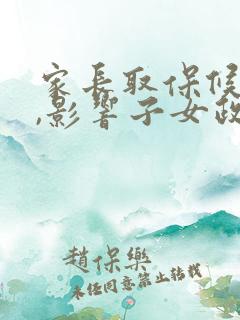 家長取保候
,影響子女政
趙保樂
未经同意禁止转载